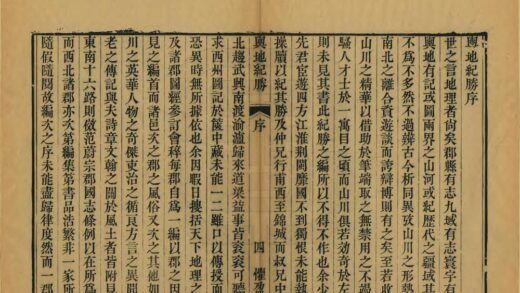 輿地紀勝序
世之言地理者尚矣郡縣有志九域有志寰宇有
輿地有記或圖兩界之山河或紀歷代之疆域其
不為不多然不過辨古今析同異攷山川之形勢
南北之離合資遊談而誇辯博則有之矣至若收
山川之精華以借助於筆端取之無禁用之不
騷人才士於一寓目之頃而山川俱若効奇於左
則未見其書此紀勝之編所以不得不作也余少
先君宦遊四方江淮荆閩靡國不到獨恨未能
操牘以紀其勝及仲兄行甫西至錦城而叔兄中
北趨武興南渡渝瀘歸來道梁益事皆袞袞可
輿地紀勝
序
四
懼盈
求西州圖記於篋中藏未能一二雖口以傳授而
恐異時無所據依也余因暇日搜括天下地理之
及諸郡圖經參訂會稡每郡自為一編以郡之因
見之編首而諸邑次之郡之風俗又次之其他如
川之英華人物之奇傑吏治之循良方言之異聞
老之傳記與夫詩章文翰之關於風土者皆附見
東南十六路則倣范蔚宗郡國志條例以在所為
而西北諸郡亦次第編集第書品浩繁非一家所
隨假隨閱故編次之序未能盡歸律度然而一郡